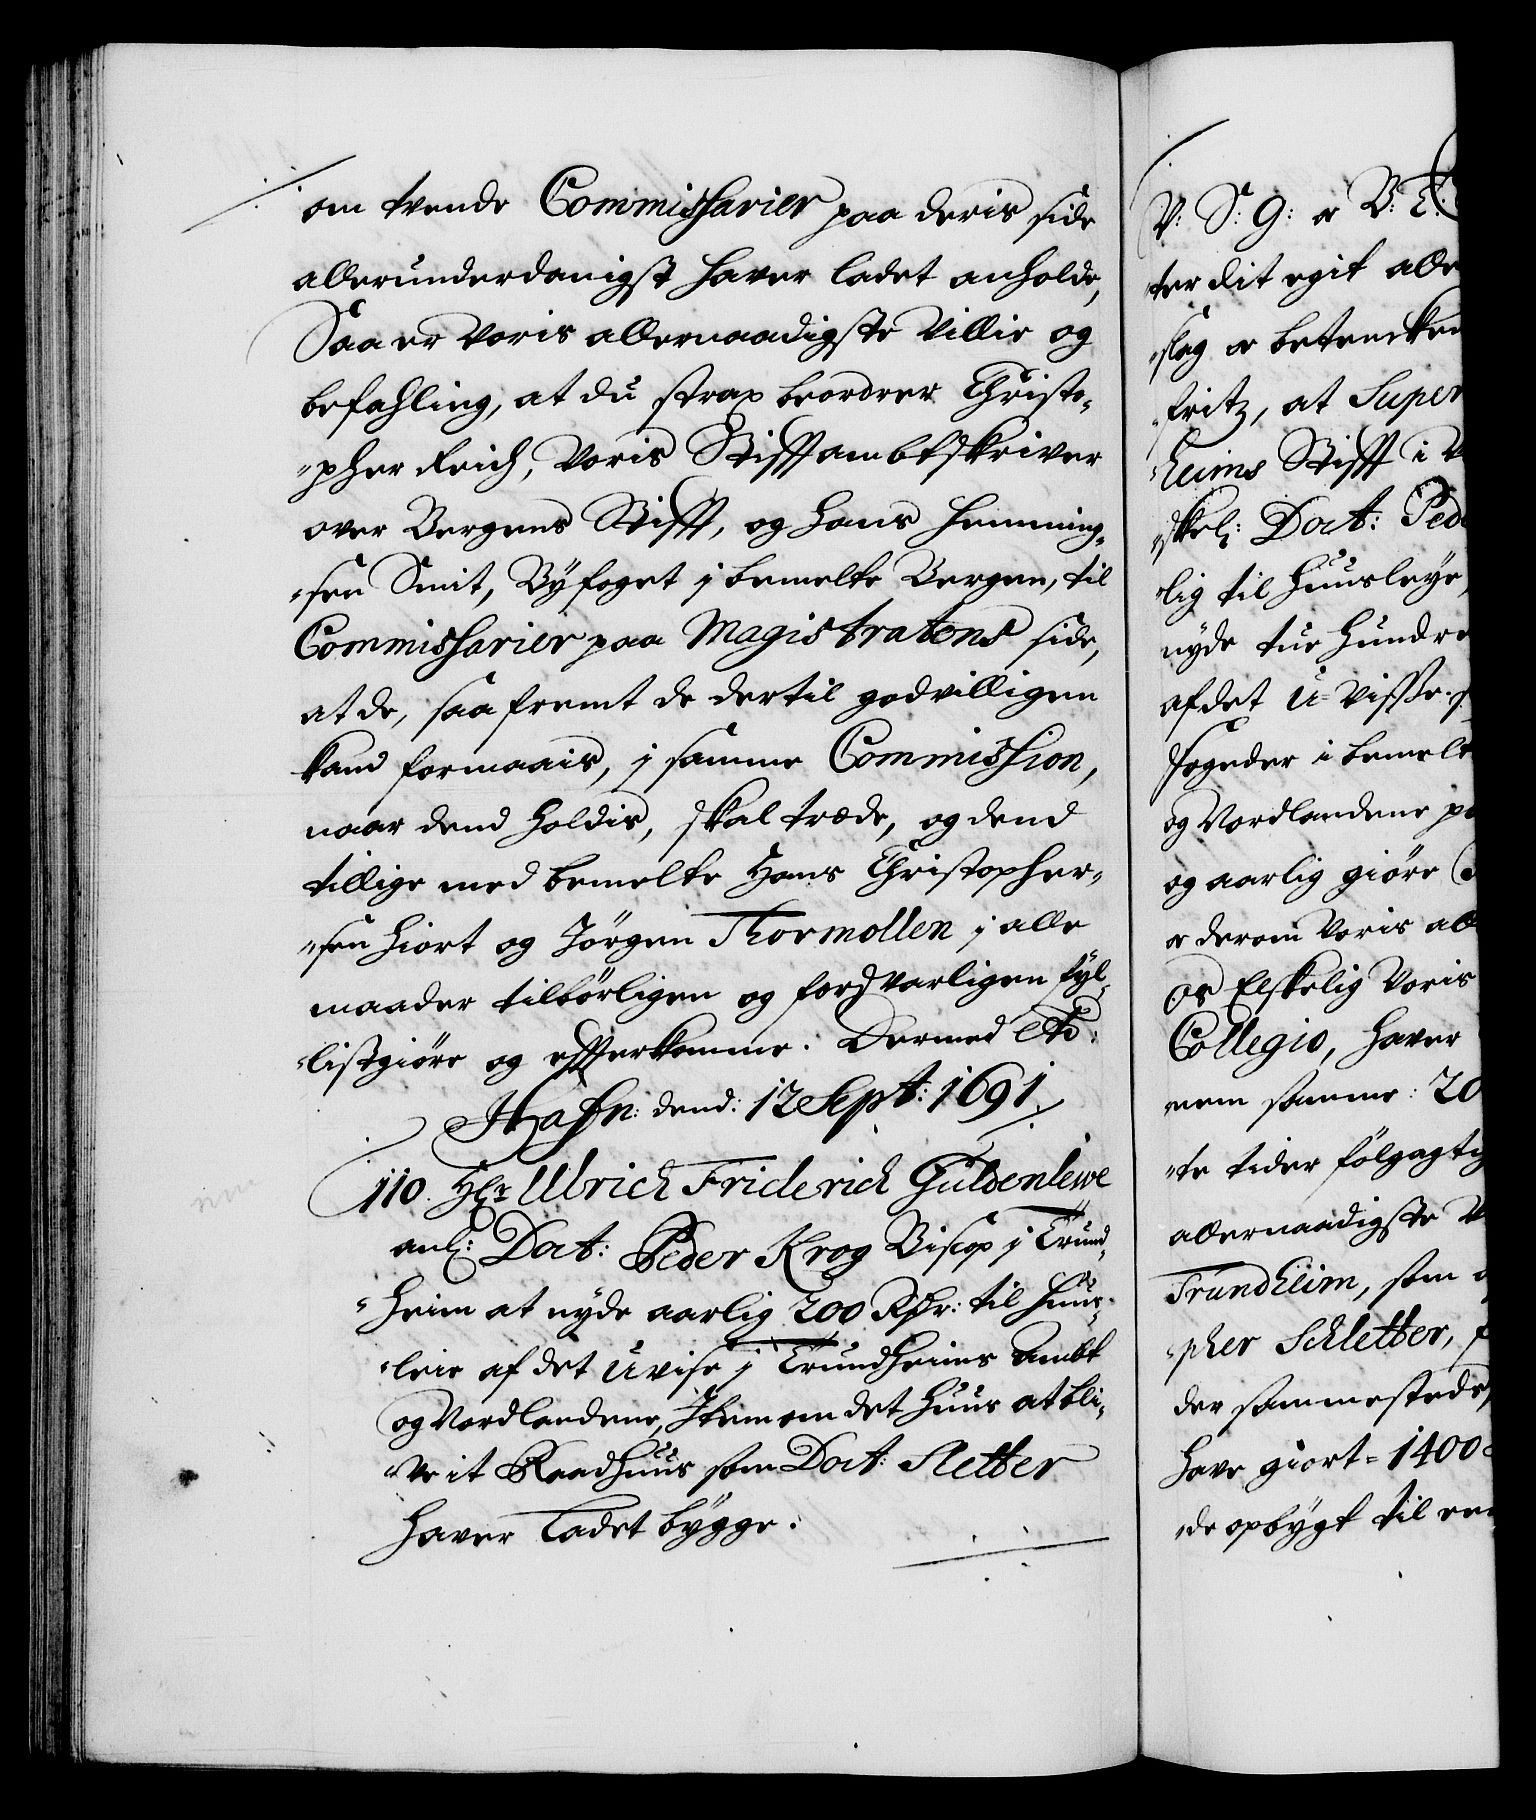 om tvende Commissarier paa deris side
allerunderdanigst haver ladet anholde,
Saa er Voris allernaadigste Villie og
befahling, at du strax beordrer Christo-
-pher Reich, Voris Stifftambtskriver
over Bergens Stifft, og Hans Henning-
-sen Smit, Byfoget j bemelte Bergen, til
Commissarier paa Magistratens side,
at de, saafremt de dertil godvilligen
kand formaais, j samme Commission,
naar dend holdis, skal træde, og dend
tillige med bemelte Hans Christopher-
-sen Hiort og Jørgen Thormøllen j alle
maader tilbørligen og fordvarligen fyl-
-listgiøre og effterkomme. Dermed etc:
Hafn: dend: 12 Sept: 1691.
110. Hr Ulrich Friderich Güldenlewe
anl: Doct: Peder Krog Biscop j Trund-
-heim at nyde aarlig 200 Rdr: til Huus-
-leie af det Uvise j Trundheims Ambt
og Nordlandene, Item om det Huus at bli-
-ve it Raadhuus som Doct: Sletter
haver ladet bygge.
V: S: G: oc B: E:
-ter dit egit alle
-slag oc betencken
-fritz, at Super
-heims Stifft i
-skel: Doct: Ped
-lig til Huusleye,
nyde tue Hundre
af det U-Visse
fogder i bemelt
og Nordlandene
og aarlig giøre
oc derom Voris all
os Elskelig Voris
Collegio, haver
nem samme: 20
-te tider følgagtig
allernaadigste
Trundheim, som
-pher Schletter,
der sammesteds,
have giort = 1400
-de opbygt til